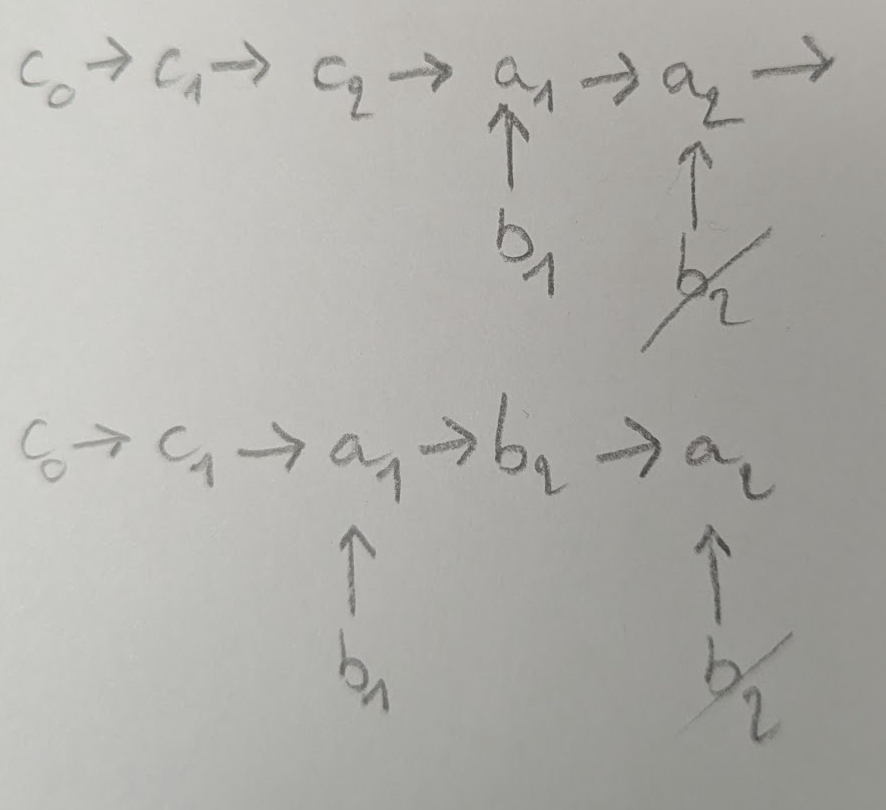 c₀ → c₁ → c₂ → a₁ → a₂ →
↑ ↑
b₁ b₂
c₀ → c₁ → a₁ → b₂ → a₂
↑ ↑
b₁ b₂